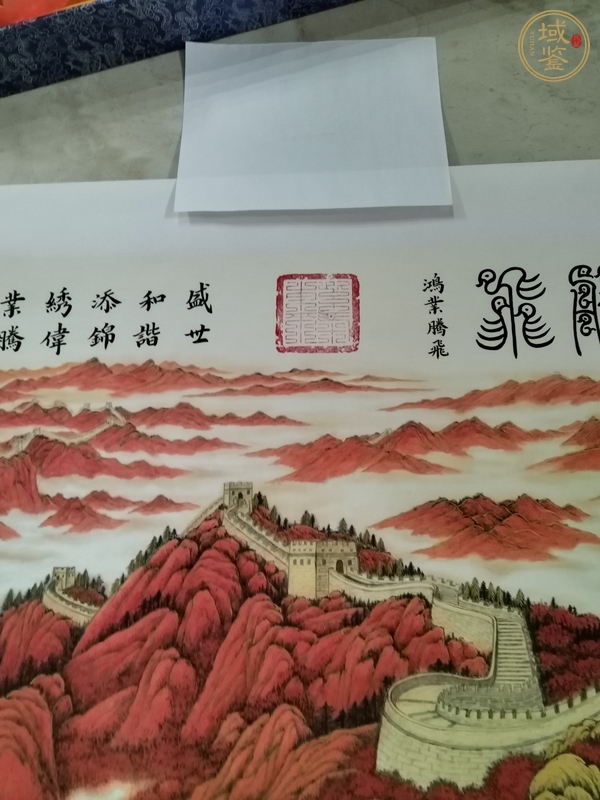 飛
鴻業騰飛
盛世
和諧
添錦
綉偉
業騰
域鑒